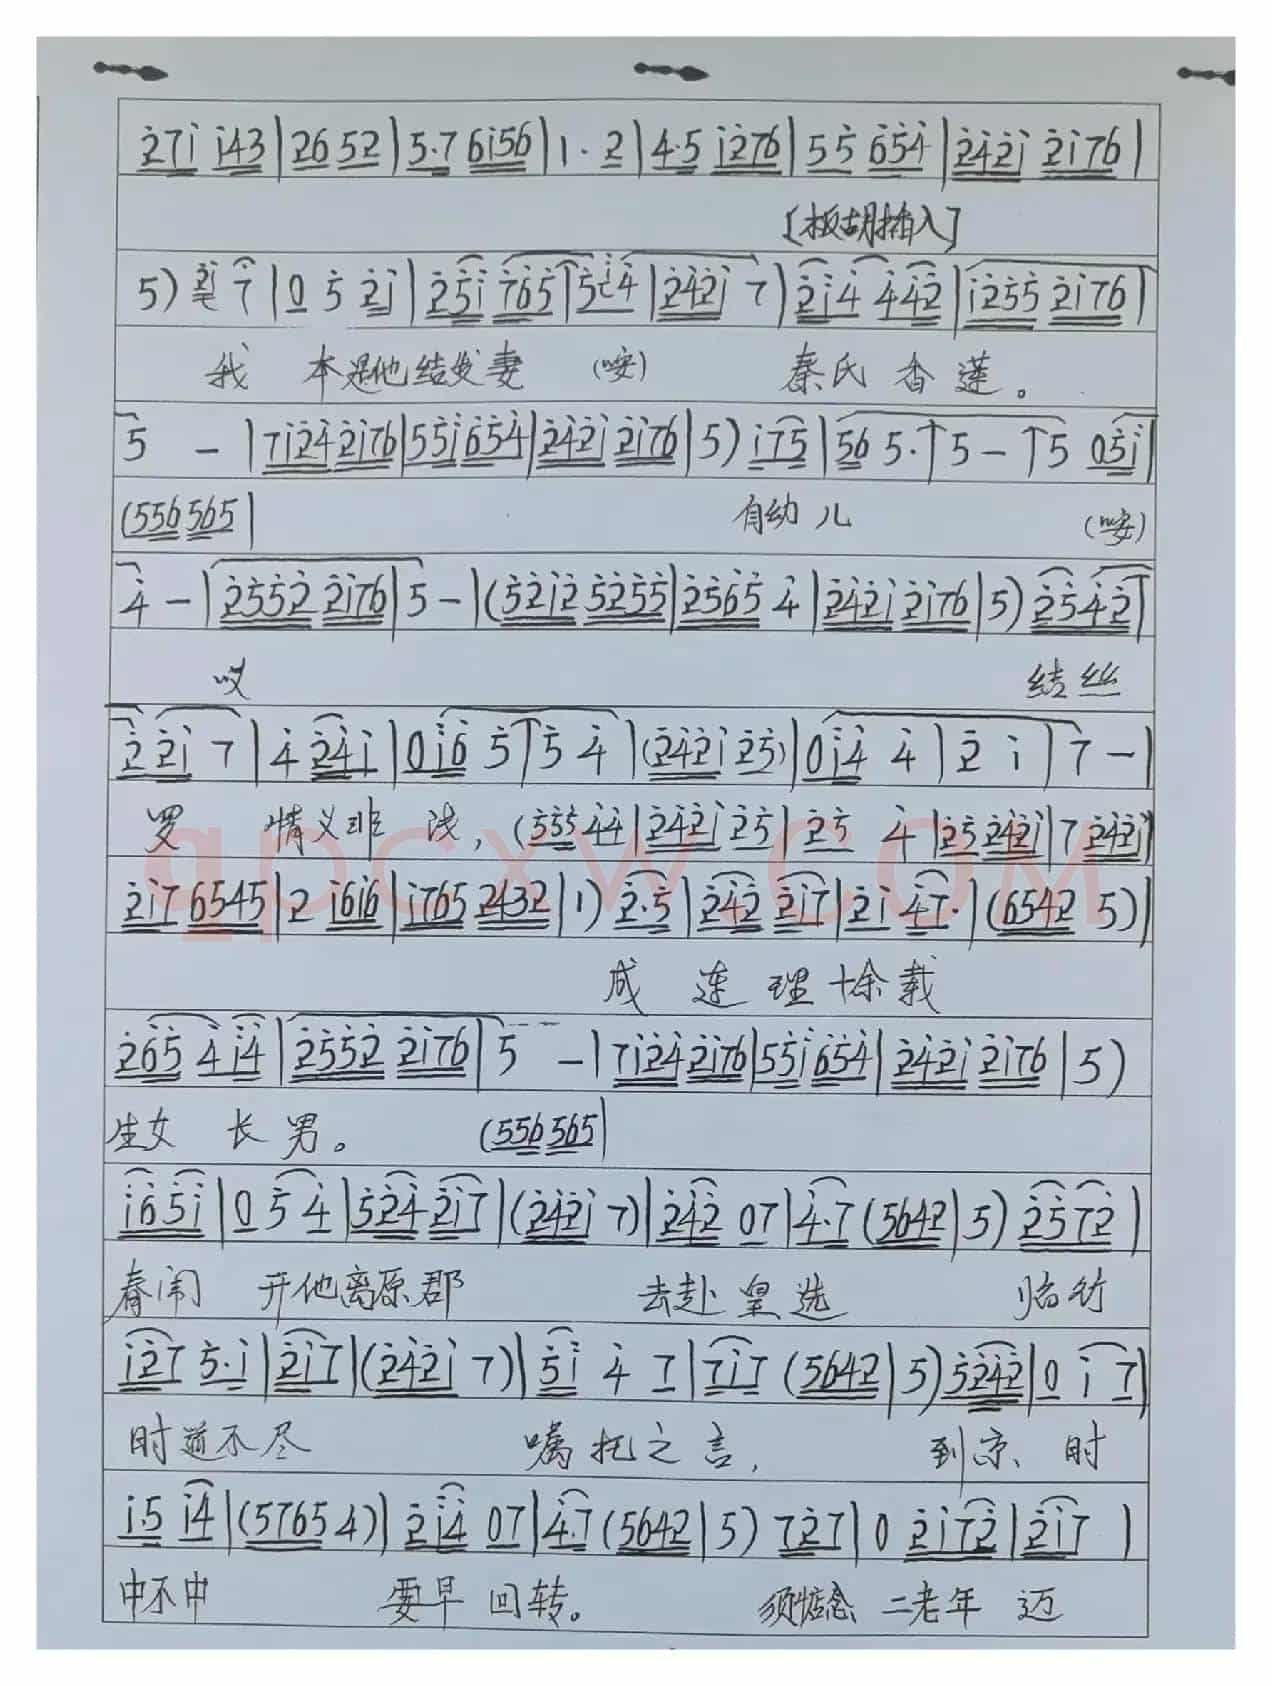 2̇7i̇ i̇43|26 52|5·7 6i̇56|1·2|4·5 i̇2̇76|55̇ 6̇5̇4̇|2̇4̇2̇i̇ 2̇i̇76|
[板胡插入]
5) 7̇|0 5̇ 2̇i̇|2̇5̇i̇ 7̇6̇5̇|5̇i̇4̇|2̇4̇2̇i̇ 7|2̇i̇4̇ 4̇4̇2̇|i̇2̇5̇5̇ 2̇i̇76|
我 本是他结发妻 (咹) 秦氏香莲。
5 -|7i̇2̇4̇ 2̇i̇76|5̇5̇i̇ 6̇5̇4̇|2̇4̇2̇i̇ 2̇i̇76|5) i̇75|56 5·|5-|5 05̇i̇|
(556 565| 有幼儿 (咹)
4̇ -|2̇5̇5̇2̇ 2̇i̇76|5-|(5̇2̇i̇2̇ 5̇2̇5̇5̇|2̇5̇6̇5̇ 4̇|2̇4̇2̇i̇ 2̇i̇76|5) 2̇5̇4̇2̇|
哎 结丝
2̇ 2̇i̇ 7|4̇ 2̇4̇i̇|0i̇6̇ 5̇|5̇ 4̇|(2̇4̇2̇i̇ 2̇5̇)|0i̇4̇ 4̇|2̇ i̇|7-|
罗 情义非浅, (5̇5̇5̇ 4̇4̇|2̇4̇2̇i̇ 2̇5̇|2̇5̇ 4̇|2̇5̇ 2̇4̇2̇i̇|7 2̇4̇2̇i̇|
2̇i̇7 6545|2 i̇6i̇6|i̇765 2432|1) 2̇·5̇|2̇4̇2̇ 2̇i̇7|2̇i̇ 4̇7·|(6542 5)|
成连理十余载
2̇6̇5̇ 4̇i̇4̇|2̇5̇5̇2̇ 2̇i̇76|5 -|7i̇2̇4̇ 2̇i̇76|5̇5̇i̇ 6̇5̇4̇|2̇4̇2̇i̇ 2̇i̇76|5)
生女长男。 (556 565|
i̇6̇5̇i̇|0 5̇ 4̇|5̇2̇4̇ 2̇i̇7|(2̇4̇2̇i̇ 7)|2̇4̇2̇ 07|4̇·7 (5642|5) 2̇5̇72̇|
春闱 开他离原郡 去赴皇选 临行
i̇2̇7 5̇·i̇|2̇i̇7|(2̇4̇2̇i̇ 7)|5̇i̇ 4̇ 7|7i̇7 (5642|5) 5̇2̇4̇2̇|0 i̇ 7|
时道不尽 嘱托之言, 到京、时
i̇·5̇ i̇4̇|(5765 4)|2̇i̇4̇ 07|4̇·7 (5642|5) 72̇7|0 2̇i̇72̇|2̇i̇7 |
中不中 要早回转。 须惦念二老年迈